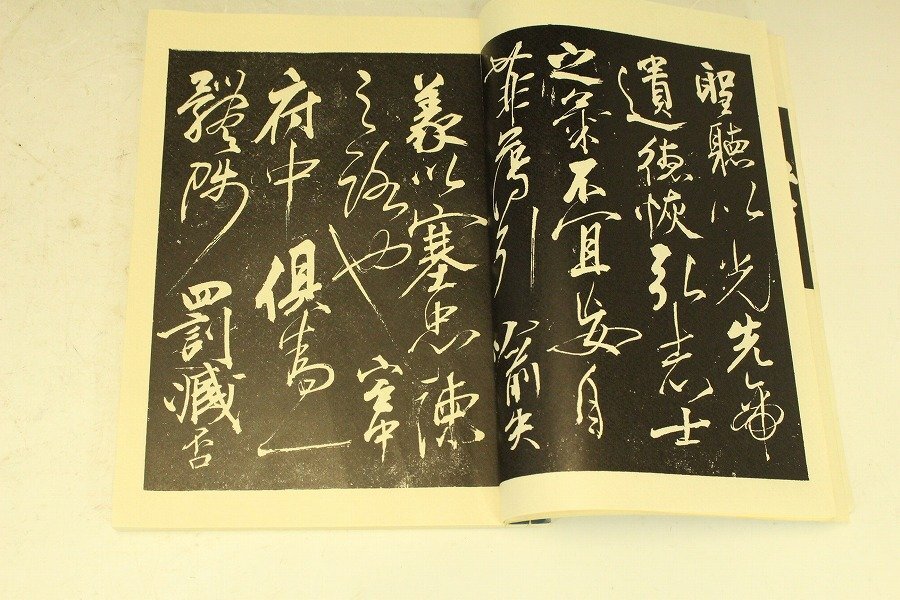 聖聽以光先帝
遺德恢弘志士
之氣不宜妄自
菲薄引喻失
義以塞忠諫
之路也宮中
府中俱為一
體陟罰臧否